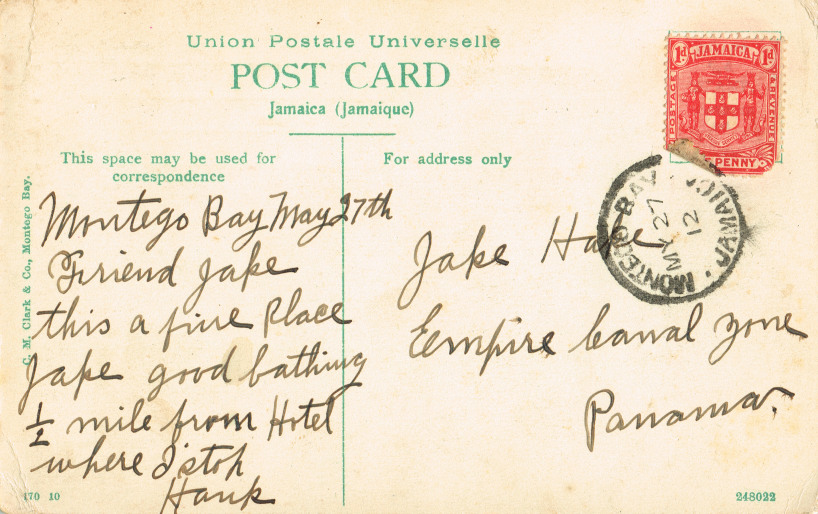 Union Postale Universelle
POST CARD
Jamaica (Jamaique)
This space may be used for
correspondence
For address only
1d JAMAICA 1d
POSTAGE & REVENUE
PENNY
MONTEGO BAY JAMAICA
MY 27
12
Montego Bay May 27th
Friend Jake
this a fine Place
Jake good bathing
½ mile from Hotel
where I stop
Hank
Jake Hake
Eempire Canal zone
Panama.
C. M. Clark & Co., Montego Bay.
170 10
248022